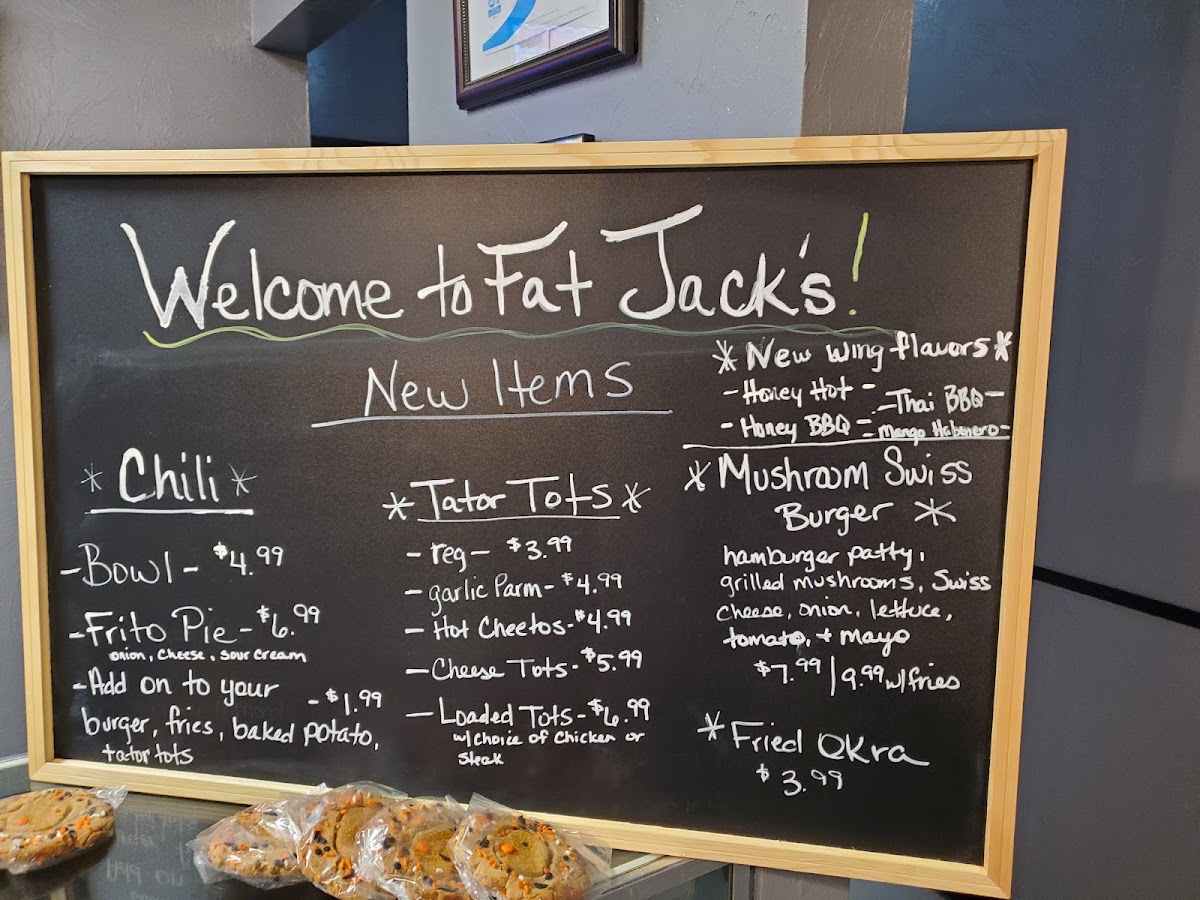 Welcome to Fat Jack's!
New Items
* Chili *
- Bowl - $4.99
- Frito Pie - $6.99
onion, cheese, sour cream
- Add on to your - $1.99
burger, fries, baked potato,
tator tots
* Tator Tots *
- reg - $3.99
- garlic Parm - $4.99
- Hot Cheetos - $4.99
- Cheese Tots - $5.99
- Loaded Tots - $6.99
w/choice of Chicken or
steak
* New wing flavors *
- Honey Hot - - Thai BBQ -
- Honey BBQ - - Mango Habenero -
* Mushroom Swiss
Burger *
hamburger patty,
grilled mushrooms, Swiss
cheese, onion, lettuce,
tomato, + mayo
$7.99 | 9.99 w/fries
* Fried Okra
$3.99